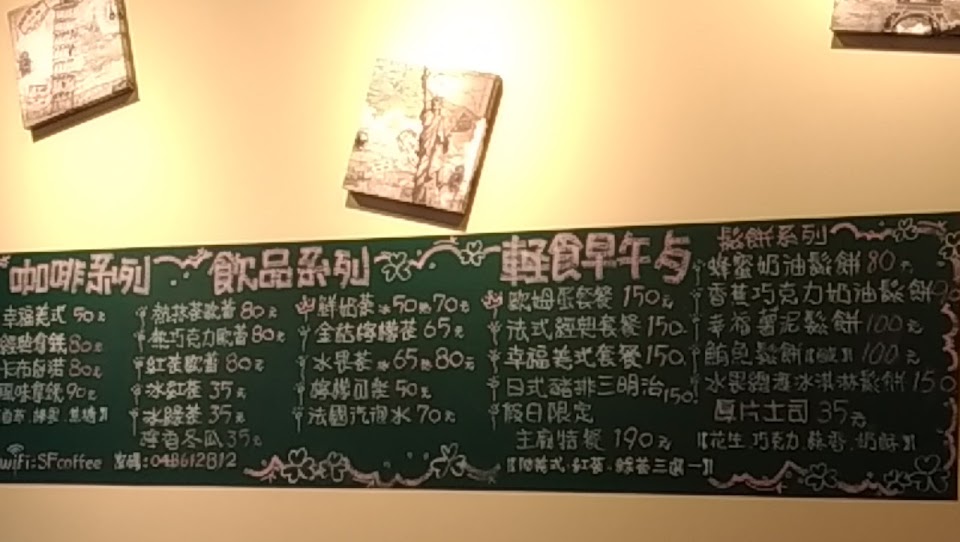 咖啡系列
幸福美式 50元
經典拿鐵 80元
卡布奇諾 80元
風味拿鐵 90元
WiFi:SFcoffee 密碼:048612812
飲品系列
熱抹茶歐蕾 80元
熱巧克力歐蕾 80元
紅茶歐蕾 80元
冰紅茶 35元
冰綠茶 35元
冬瓜 35元
鮮奶茶 冰50 熱70元
金桔檸檬茶 65元
水果茶 冰65 熱80元
檸檬可樂 50元
法國汽泡水 70元
輕食早午
歐姆蛋套餐 150元
法式經典套餐 150
幸福美式套餐 150
日式豬排三明治 150
假日限定
主廚特餐 190元
紅茶.綠茶三選一
鬆餅系列
蜂蜜奶油鬆餅 80元
香蕉巧克力奶油鬆餅
幸福薯泥鬆餅 100元
鮪魚鬆餅 100元
水果總匯冰淇淋鬆餅 150
厚片土司 35元
花生.巧克力.蒜香.奶酥